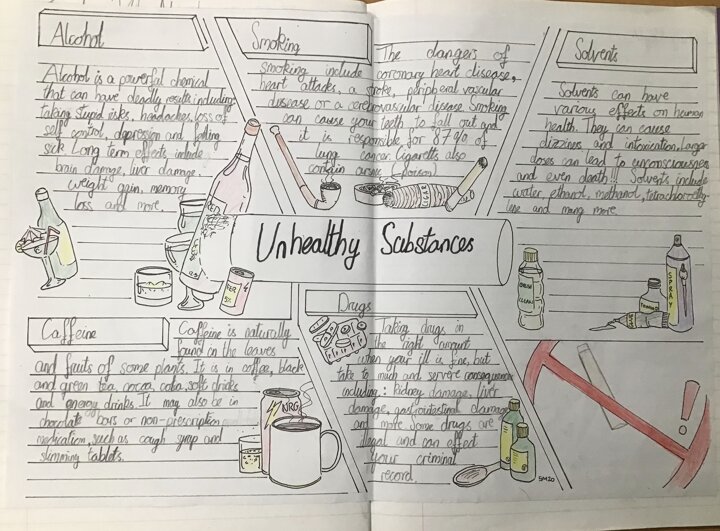 Alcohol
Alcohol is a powerful chemical
that can have deadly results including
taking stupid risks, headaches, loss of
self control, depression and falling
sick. Long term effects include
brain damage, liver damage,
weight gain, memory
loss and more.
Smoking
The dangers of
smoking include coronary heart disease,
heart attacks, a stroke, peripheral vascular
disease or a cerebrovascular disease. Smoking
can cause your teeth to fall out and
it is responsible for 87% of
lung cancer. Cigaretts also
contain arsnic (poison)
Solvents
Solvents can have
various effects on human
health. They can cause
dizziness and intoxication. Larger
doses can lead to unconsciousness
and even death!!! Solvents include
water, ethanol, methanol,
and many more.
Unhealthy Substances
Caffeine
Caffeine is naturally
found in the leaves
and fruits of some plants. It is in coffee, black
and green tea, cocoa, cola, soft drinks
and energy drinks. It may also be in
chocolate bars or non-prescription
medication, such as cough syrup and
slimming tablets.
NRG
Drugs
Taking drugs in
the right amount
when your ill is fine, but
take to much and servere consequences
including: kidney damage, liver
damage, gastrointestinal damage
and more. Some drugs are
illegal and can effect
your criminal
record.
SPRAY
SM20